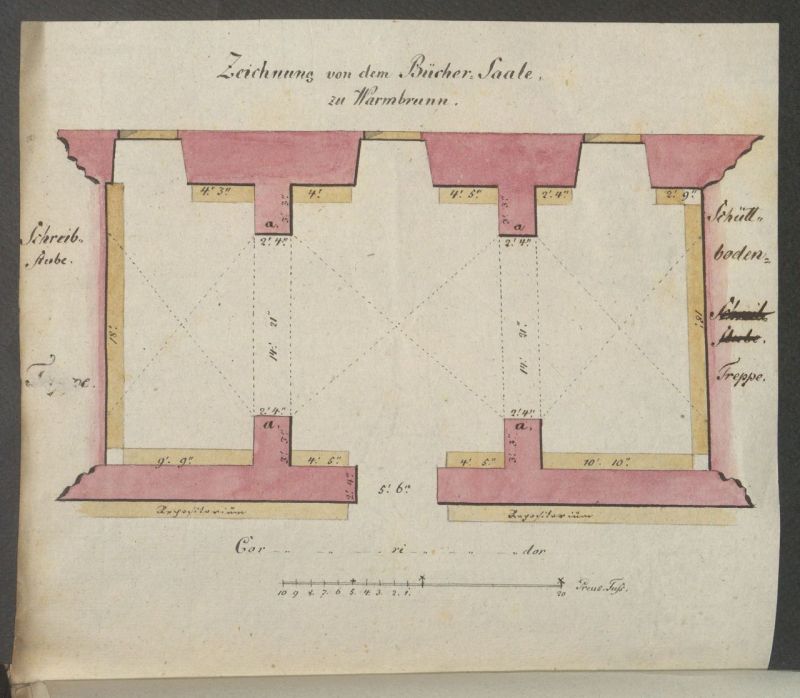 Zeichnung von dem Bücher-Saale,
zu Warmbrunn.
4.' 3."
4.'
4.' 5."
2.' 4."
2.' 9."
3.' 3."
3.' 3."
a.
a.
2.' 4."
2.' 4."
Schreib-
stube.
Schütt-
boden-
Schreib-
stube.
Treppe.
18.'
14.' 21."
14.' 21."
18.'
2.' 4."
2.' 4."
a.
a.
3.' 3."
3.' 3."
9.' 9."
4.' 5."
4.' 5."
10.' 10."
2.' 4."
5.' 6."
Repositorium
Repositorium
Cor ri dor
10 9 8. 7. 6 5. 4. 3. 2. 1. 20 Preus. Fuß.